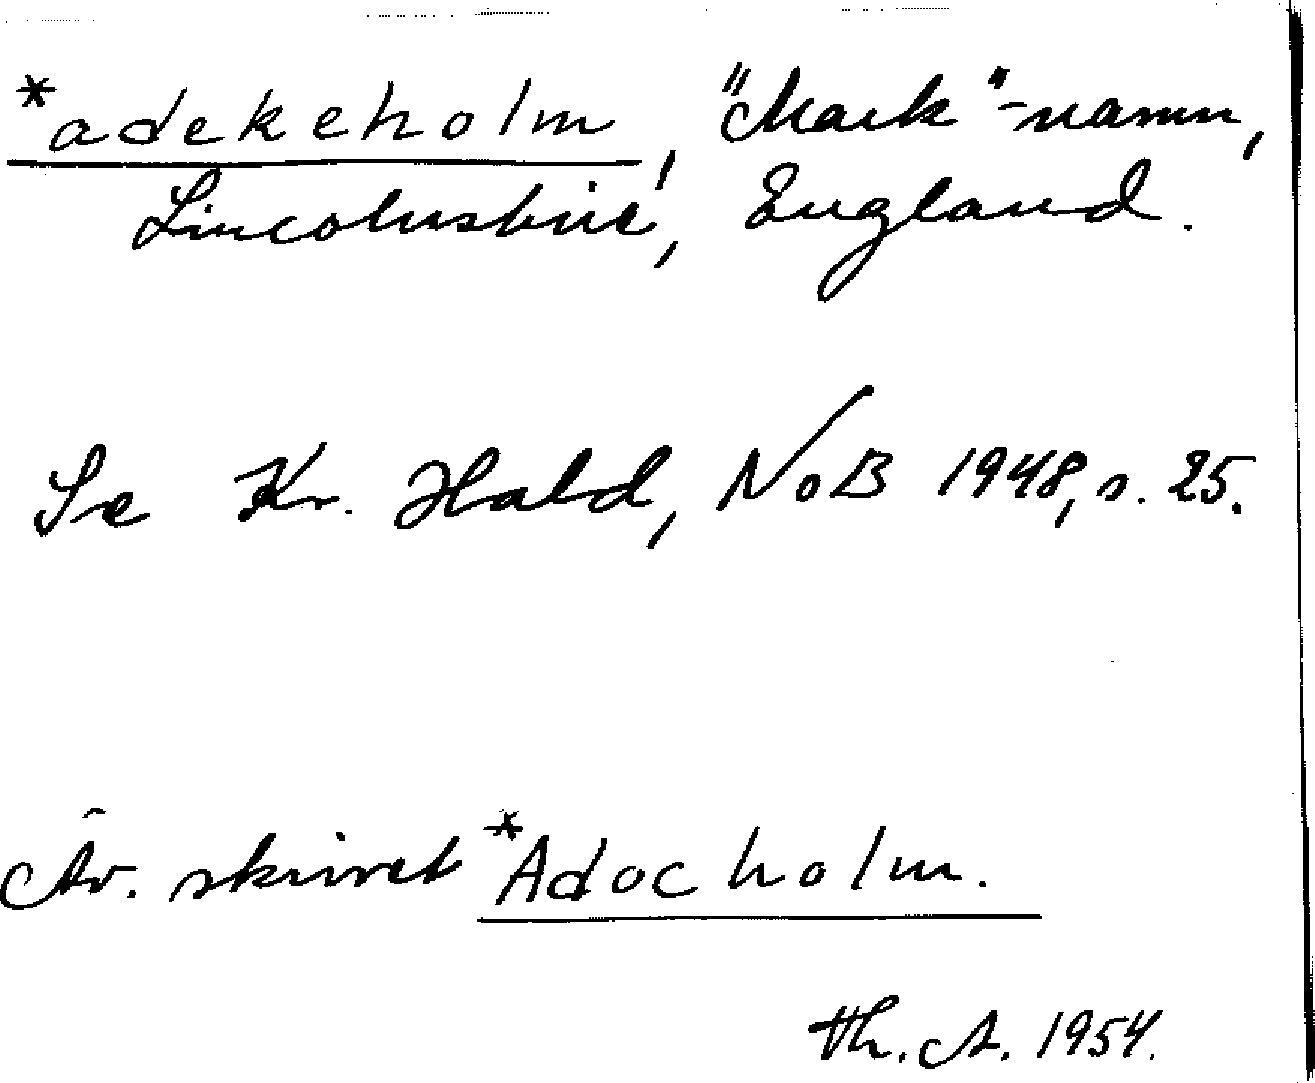 *adekeholm, "Mark"-namn,
Lincolnshire, England.
Se Kr. Hald, NoB 1948, s. 25.
Äv. skrivet *Adocholm.
Th. A. 1954.